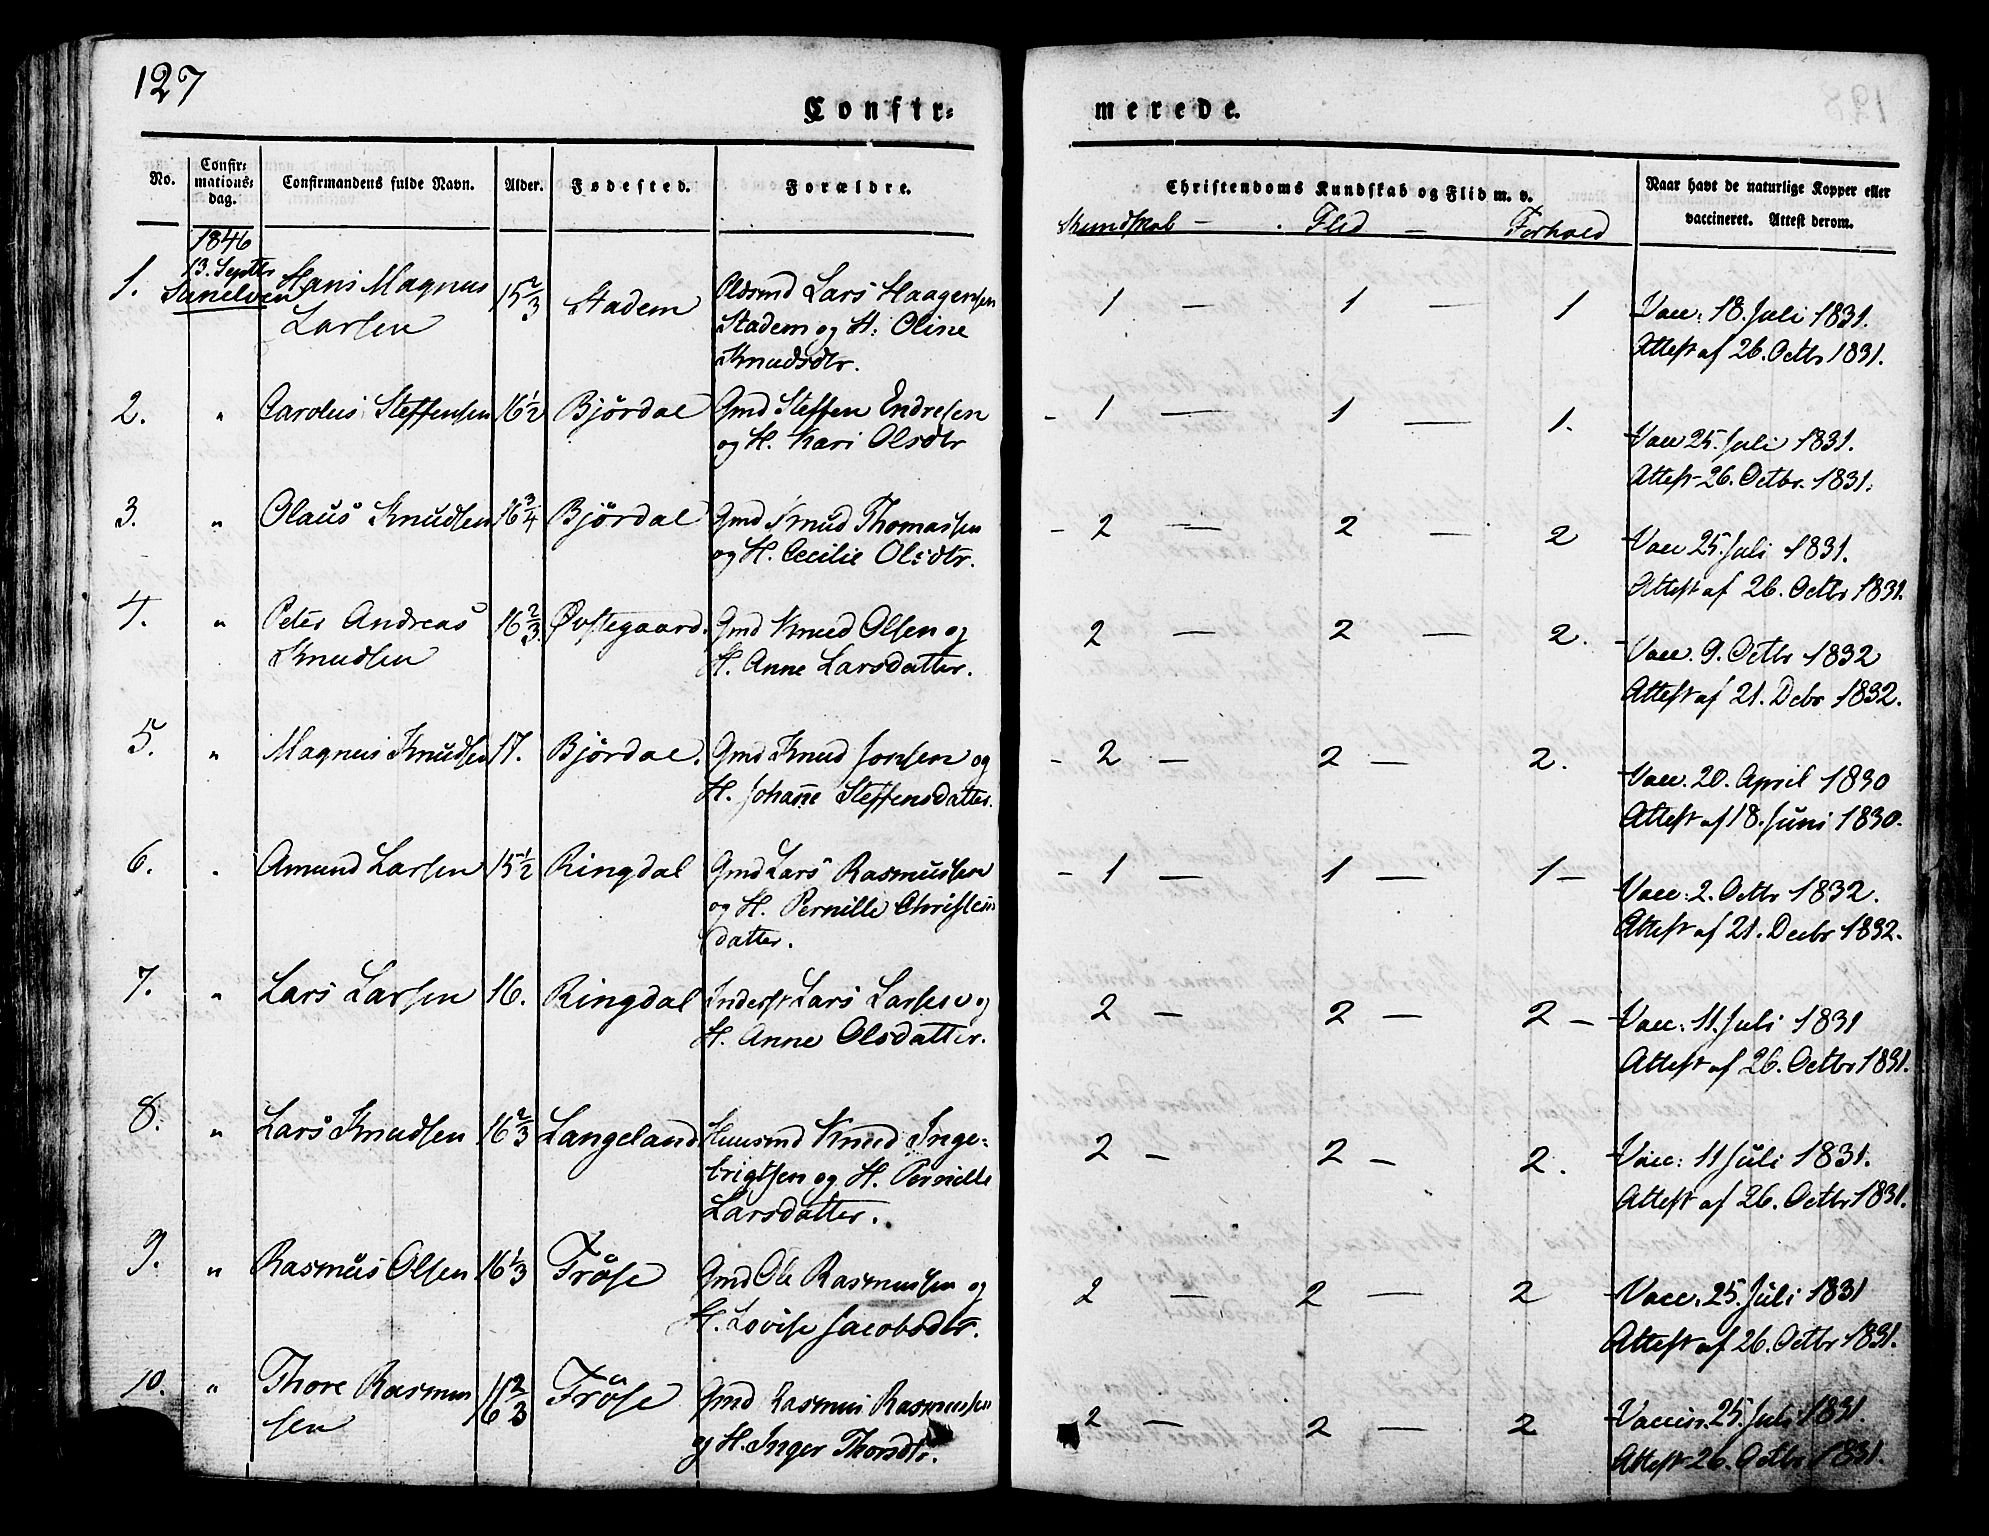 127
Confir=
merede.
No.
Confir=
mations=
dag.
Confirmandens fulde Navn.
Alder.
Fødested.
Forældre.
Christendoms Kundskab og Flid m. v.
Kundskab — . Flid — Forhold
Naar havt de naturlige Kopper eller
vaccineret. Attest derom.
1846
13. Septbr
Sunelven
1. Hans Magnus 15 2/3 Stadem
Larsen
Lars Haagensen
Stadem og H: Oline
Knudsdtr.
1 — 1 — 1
Vacc: 18. Juli 1831.
Attest af 26. Octbr 1831.
2. " Carolus Steffensen 16 1/2 Bjørdal Gmd Steffen Endresen
og H. Kari Olsdtr
- 1 — 1 — 1.
Vacc 25. Juli 1831.
Attest 26. Octbr. 1831.
3. " Olaus Knudsen 16 3/4 Bjørdal Gmd Knud Thomassen
og H. Cecilie Olsdtr.
- 2 — 2 — 2
Vacc 25. Juli 1831.
Attest af 26. Octbr 1831.
4. " Peter Andreas 16 2/3 Øvstegaard. Gmd Knud Olsen og
Knudsen H. Anne Larsdatter.
2 — 2 — 2. -
Vacc. 9. Octbr 1832
Attest af 21. Debr 1832.
5. " Magnus Knudsen 17. Bjørdal. Gmd Knud Jonsen og
H. Johanne Steffensdatter.
- 2 — 2 — 2.
Vacc. 20. April 1830
Attest af 18. Juni 1830.
6. " Amund Larsen 15 1/2 Ringdal Gmd Lars Rasmussen
og H. Pernille Christens
datter.
- 1 — 1 — 1 —
Vacc. 2. Octbr 1832.
Attest af 21. Decbr 1832.
7. " Lars Larsen 16. Ringdal Inderst Lars Larsen og
H. Anne Olsdatter.
2 — 2 — 2 —
Vacc: 11. Juli 1831
Attest af 26. Octbr 1831.
8. " Lars Knudsen 16 2/3 Langeland Huusmd Knud Inge=
brigtsen og H. Pernille
Larsdatter.
2 — 2 — 2.
Vacc: 11 Juli 1831.
Attest af 26. Octbr 1831.
9. " Rasmus Olsen 16 1/3 Frøse Gmd Ole Rasmussen og
H. Lovise Jacobsdtr.
2 — 2 — 2
Vacc. 25. Juli 1831
Attest af 26. Octbr 1831.
10. " Thore Rasmus 16 2/3 Frøse Gmd Rasmus Rasmussen
sen og H. Inger Thorsdtr.
2 — 2 — 2
Vaccin. 25. Juli 1831.
Attest 26. Octbr 1831.